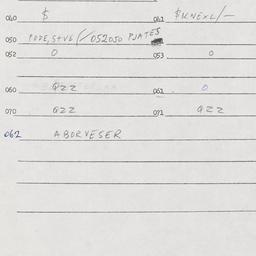 040 $ 041 $KNEXL/—
050 PODE, S+V6 (/052050 PJATES
052 0 053 0
060 QZZ 061 0
070 QZZ 071 QZZ
062 ABORVESER